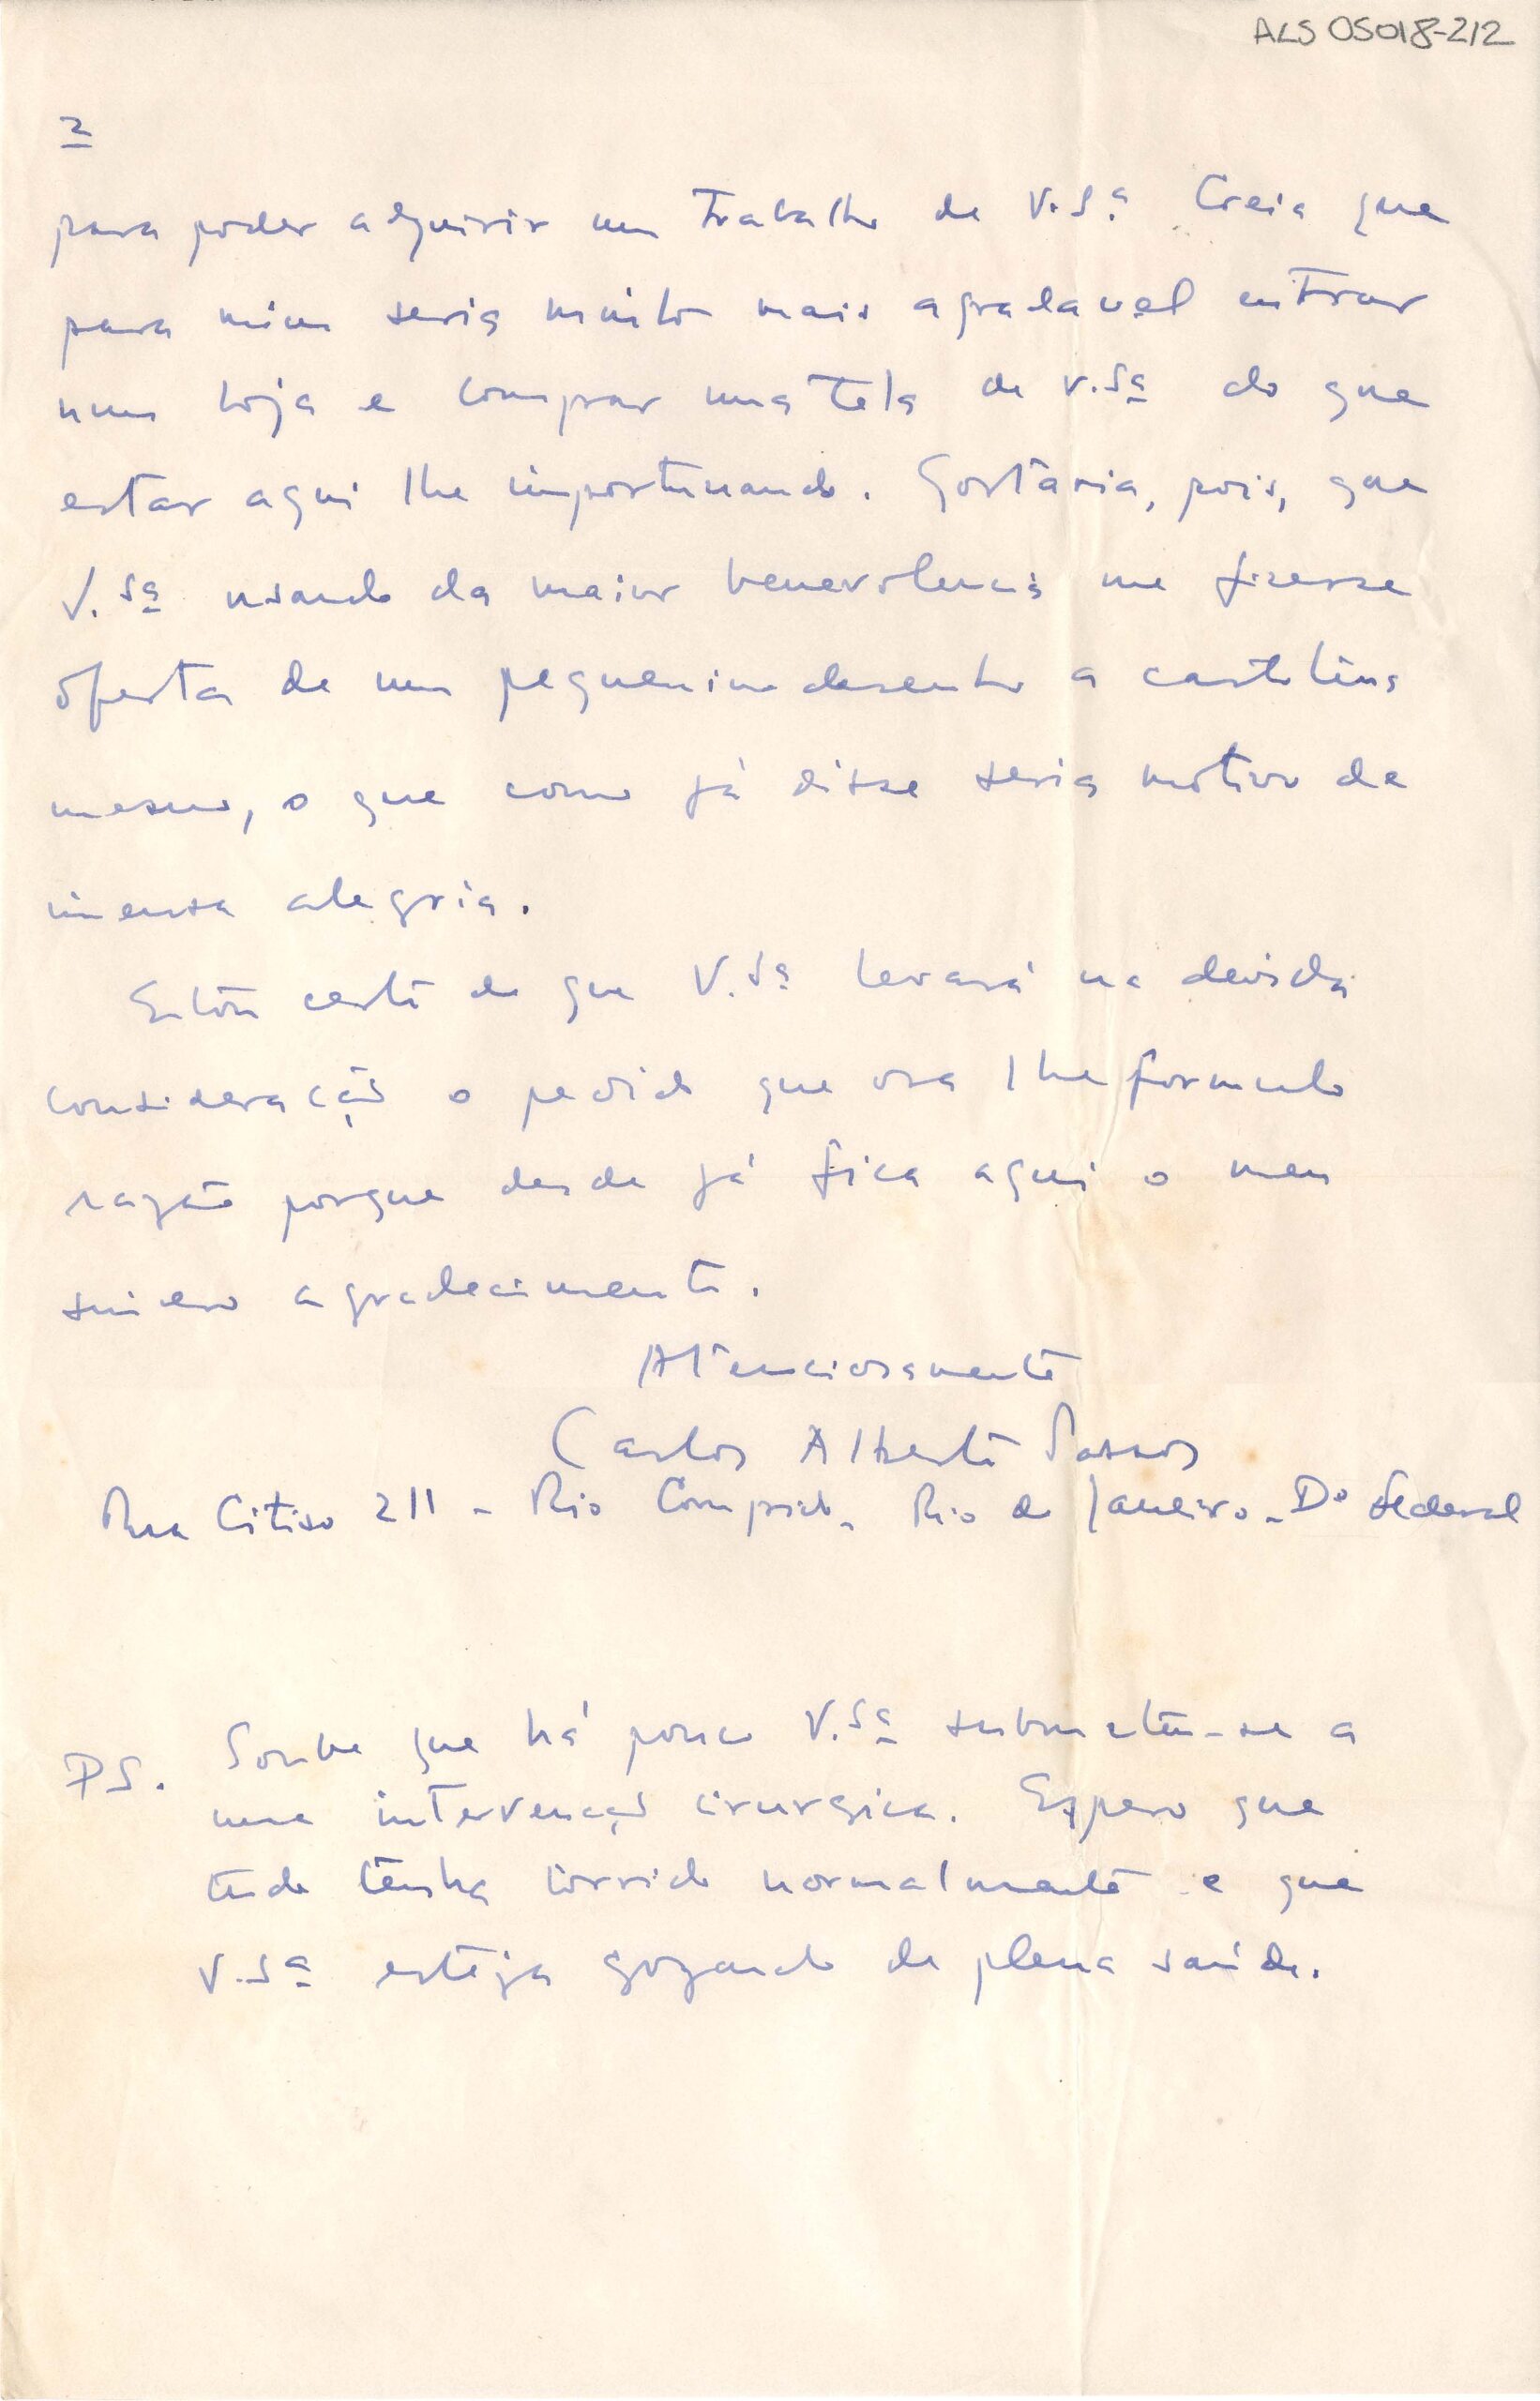 ALS 05018-2/2
2
para poder adquirir um trabalho de V.Sª Creia que
para mim seria muito mais agradavel entrar
num loja e comprar uma tela de V.Sª do que
estar aqui lhe importunando. Gostaria, pois, que
V.Sª usando da maior benevolencia me fizesse
oferta de um pequenino desenho a
mesmo, o que como já disse seria motivo de
imensa alegria.
Estou certo de que V.Sª levará na devida
consideração o pedido que ora lhe formulo
razão porque desde já fica aqui o meu
sincero agradecimento.
Atenciosamente
Carlos Alberto Passos
Rua Citiso 211 - Rio Comprido - Rio de Janeiro - Dº Federal
PS. Soube que há pouco V.Sª submeteu-se a
uma intervenção cirurgica. Espero que
tudo tenha corrido normalmente e que
V.Sª esteja gozando de plena saúde.